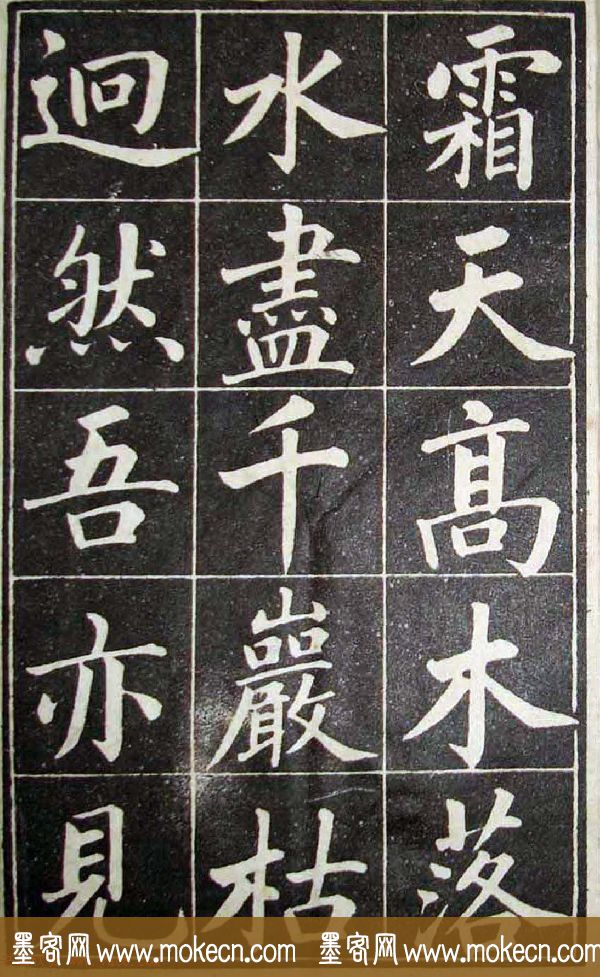 霜天髙木落
水盡千巖枯
迥然吾亦見
墨客网 www.mokecn.com 墨客网 www.mokecn.com